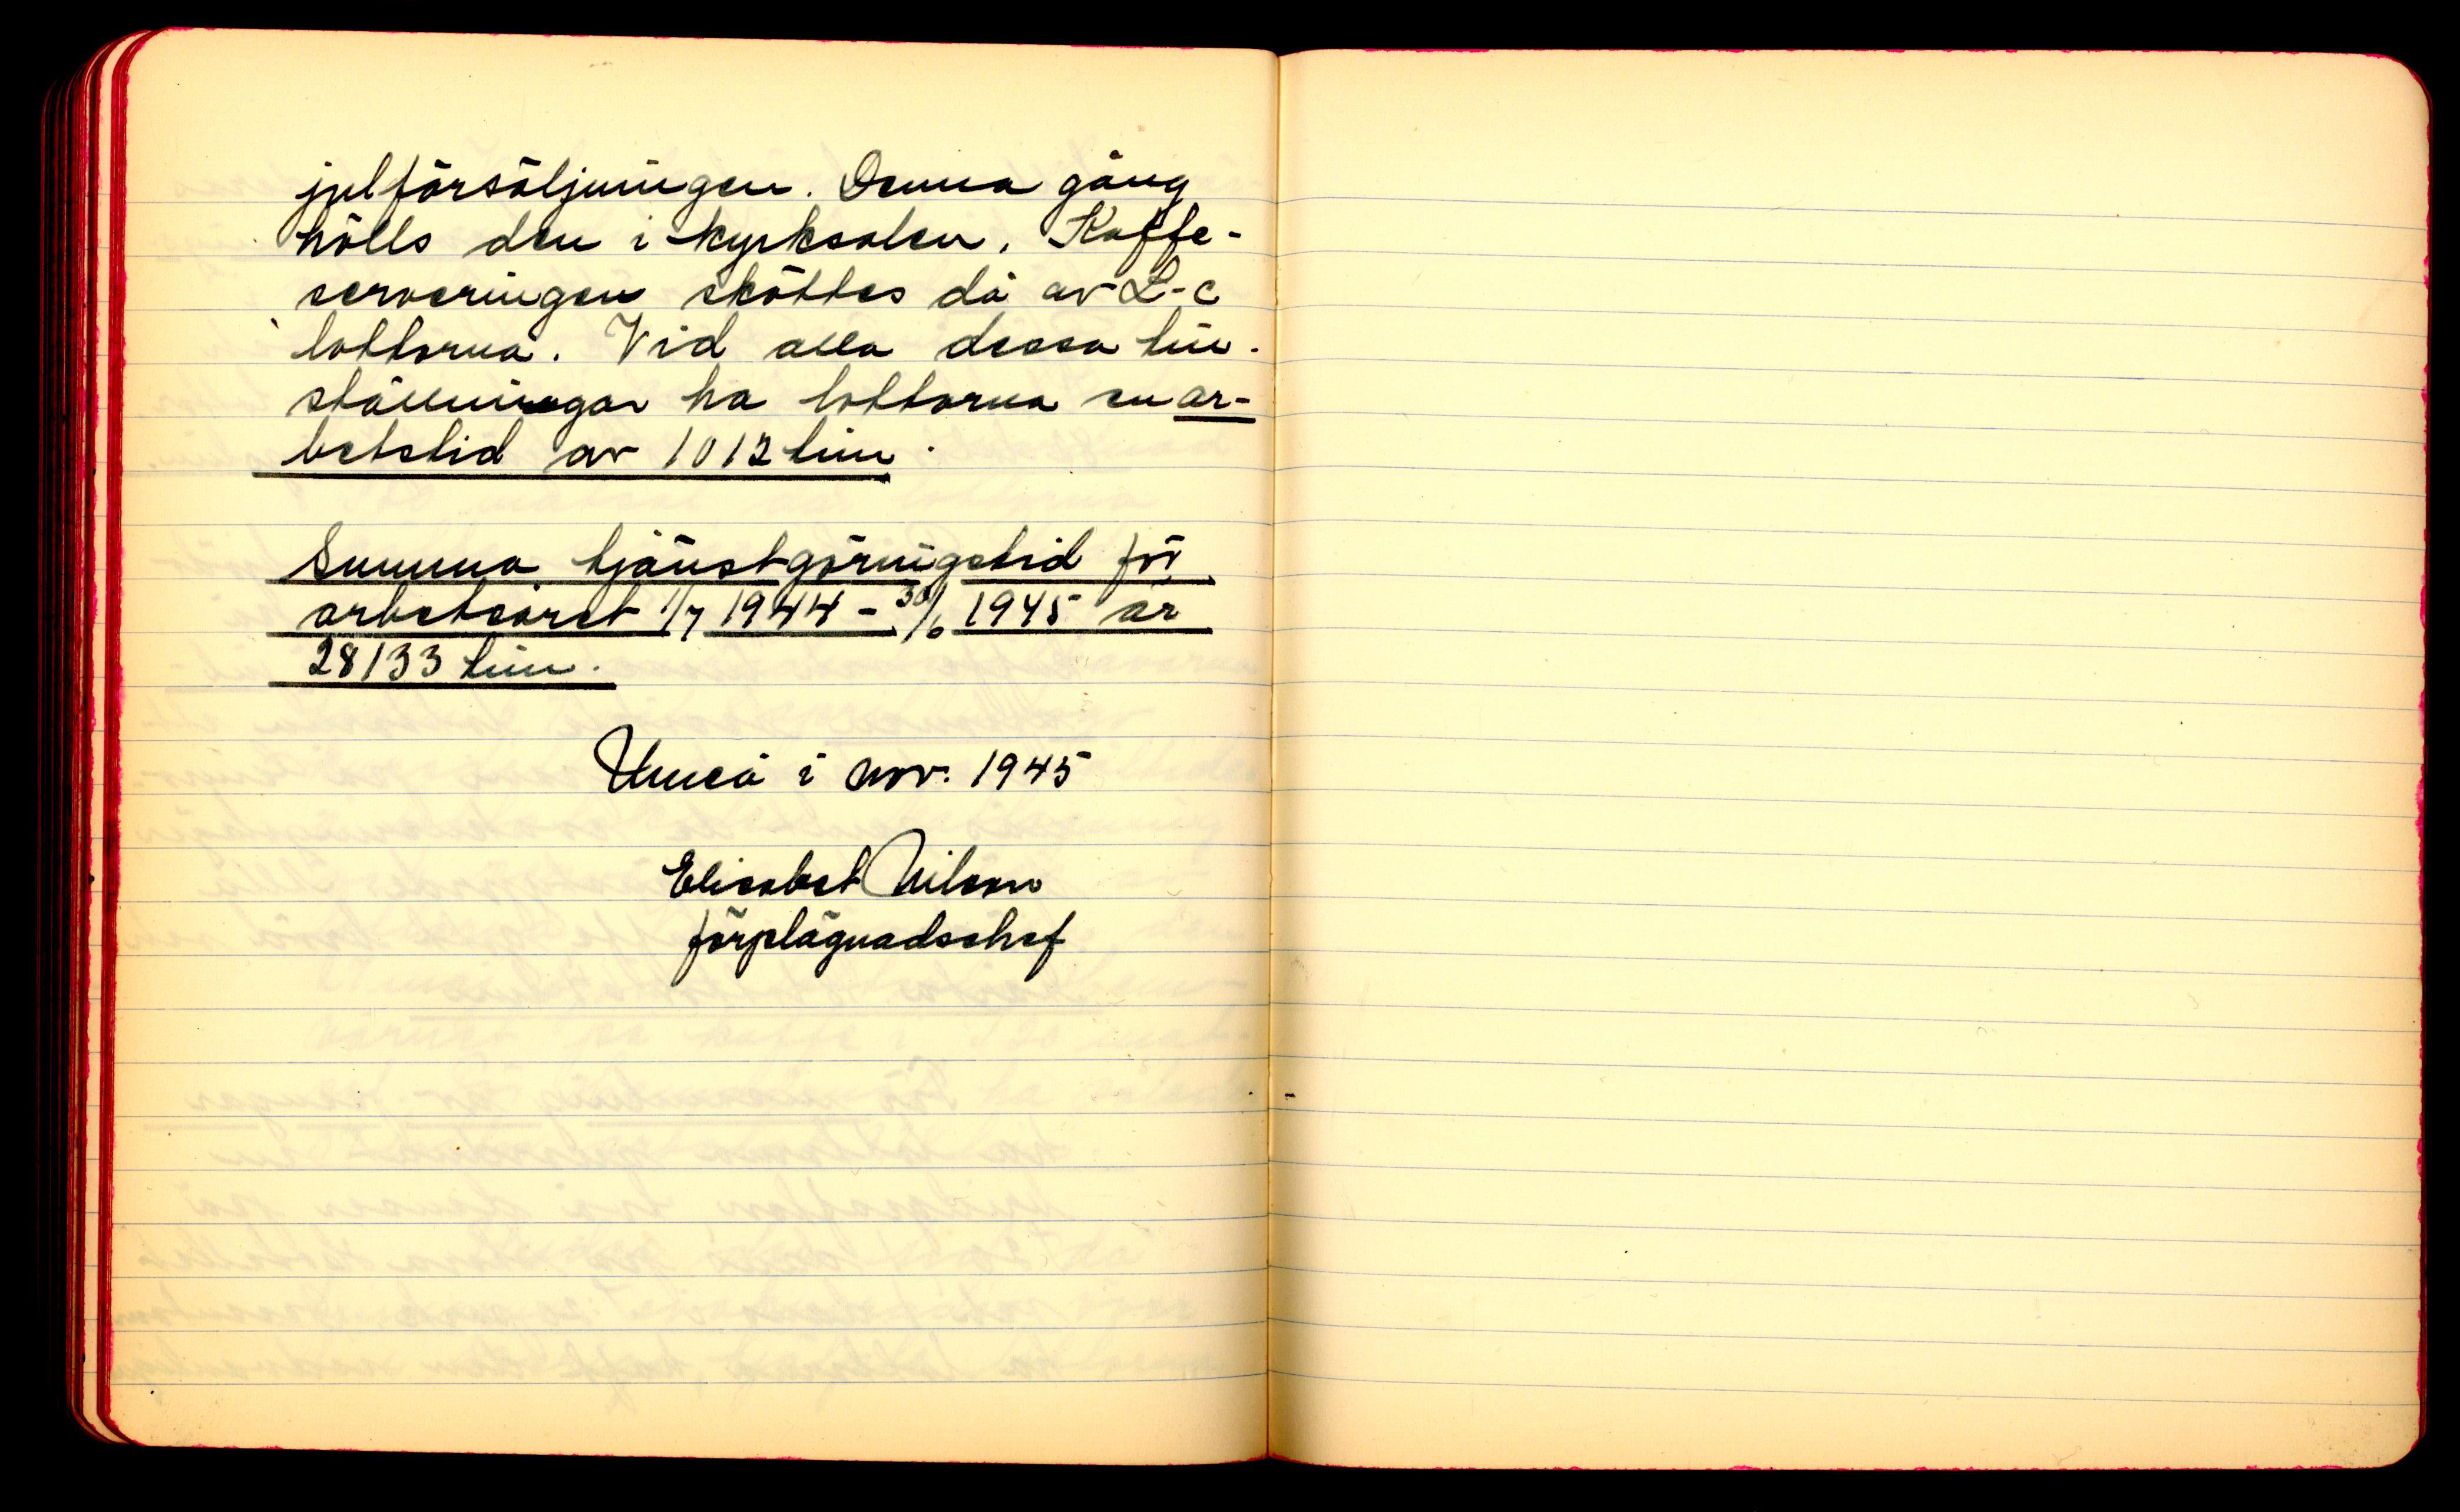 julförsäljningen. Denna gång
hölls den i kyrksalen. Kaffe-
serveringen sköttes då av L-c
lottorna. Vid alla dessa till-
ställningar ha lottorna en ar-
betstid av 1012 tim.
Summa tjänstgörningstid för
arbetsåret 1/7 1944 - 30/6 1945 är
28133 tim.
Umeå i nov. 1945
Elisabet Nilson
förplägnadschef